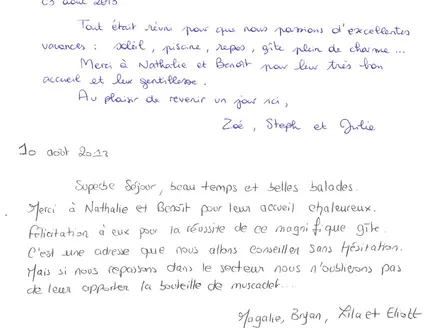 août 2013
Tout était réuni pour que nous passions d'excellentes
vacances : soleil, piscine, repos, gîte plein de charme...
Merci à Nathalie et Benoît pour leur très bon
accueil et leur gentillesse.
Au plaisir de revenir un jour ici,
Zoé, Steph et Julie
10 août 2013
Superbe Séjour, beau temps et belles balades.
Merci à Nathalie et Benoît pour leur accueil chaleureux.
Félicitation à eux pour la réussite de ce magnifique gîte.
C'est une adresse que nous allons conseiller sans Hésitation.
Mais si nous repassons dans le secteur nous n'oublierons pas
de leur apporter la bouteille de muscadet...
Magalie, Bryan, Lila et Eliott